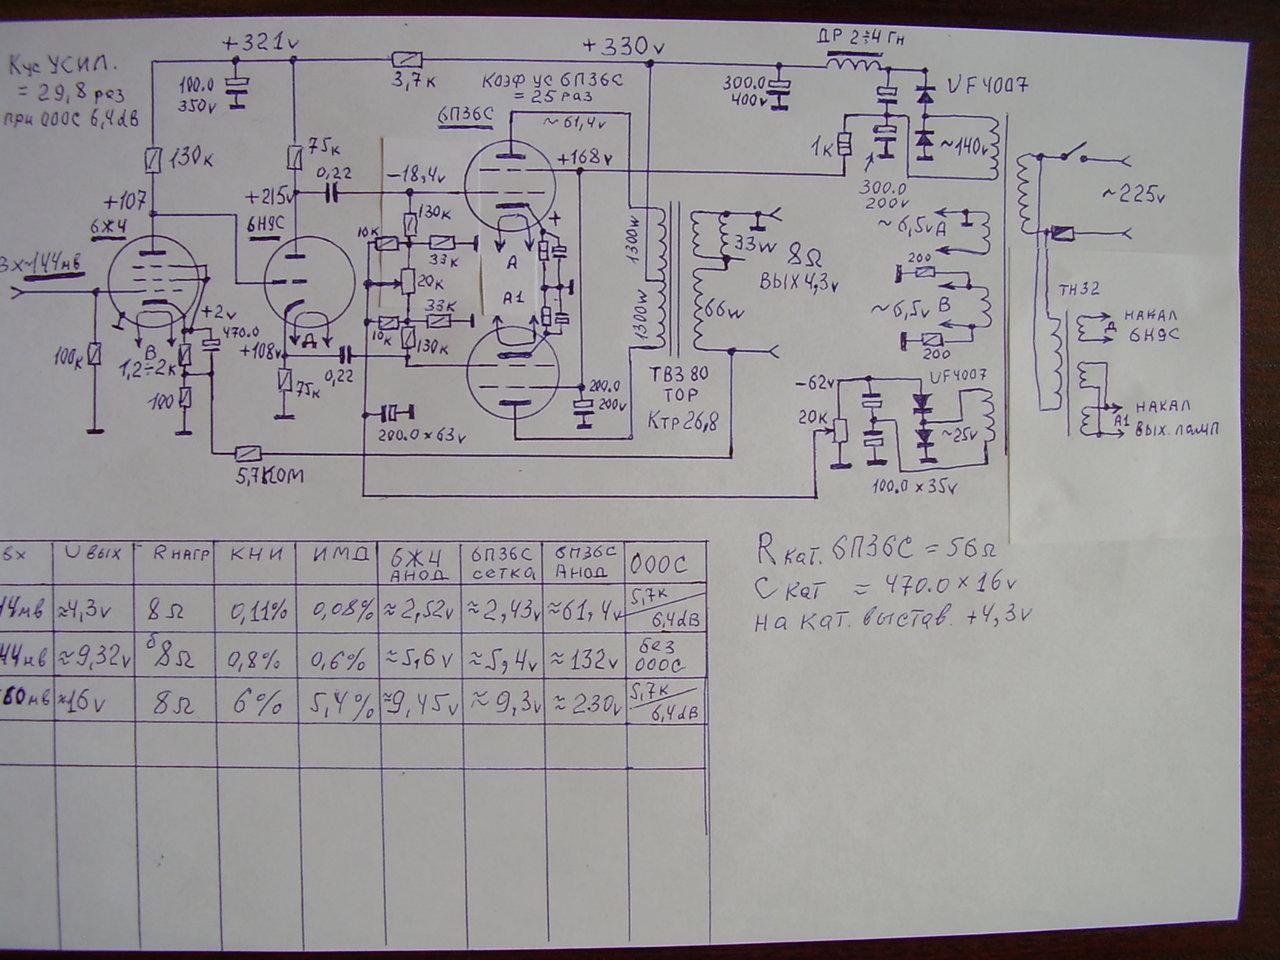 Кус УСИЛ.
= 29,8 раз
при ОООС 6,4dB
+321v
100.0
350v
3,7к
+330v
КОЭФ УС 6П36С
= 25 РАЗ
~61,4v
6П36С
ДР 2÷4 Гн
300.0
400v
UF4007
1к
~140v
300.0
200v
~225v
130к
75к
0,22
-18,4v
+168v
+107
+215v
6Ж4
6Н9С
130к
10к
33к
20к
33к
10к
130к
А
А1
+
Вх~144мв
+2v
470.0
100к
В
1,2÷2к
100
+108v
А
0,22
75к
200.0×63v
5,7КОМ
200.0
200v
1300w
1300w
33w
66w
8Ω
ВЫХ 4,3v
ТВЗ 80
ТОР
Ктр 26,8
~6,5v А
200
~6,5v В
200
ТН32
НАКАЛ
А
6Н9С
НАКАЛ
А1
ВЫХ. ЛАМП
-62v
UF4007
20к
~25v
100.0×35v
вх U вых R НАГР КНИ ИМД 6Ж4 АНОД 6П36С сетка 6П36С АНОД ОООС
44мв ≈4,3v 8Ω 0,11% 0,08% ≈2,52v ≈2,43v ≈61,4v 5,7к/6,4dB
44мв ≈9,32v 8Ω 0,8% 0,6% ≈5,6v ≈5,4v ≈132v без ОООС
≈16v 8Ω 6% 5,4% ≈9,45v ≈9,3v ≈230v 5,7к/6,4dB
R кат. 6П36С = 56Ω
С кат = 470.0×16v
на кат. выстав. +4,3v